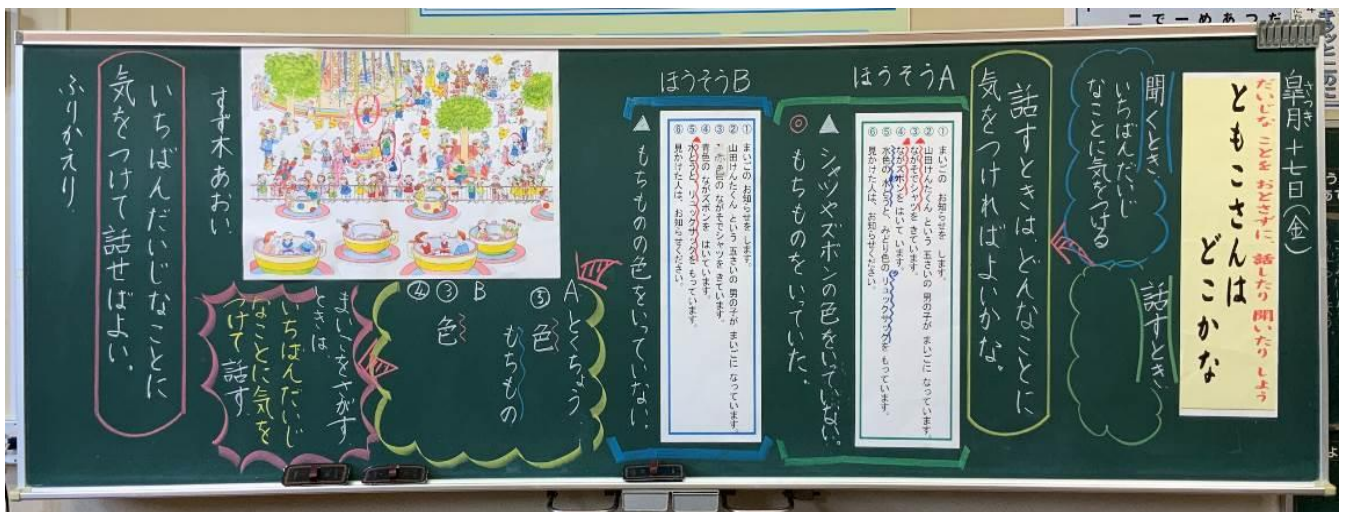 皐月十七日(金)
さつき
だいじな ことを おとさずに、話したり 聞いたり しよう
ともこさんは
どこかな
聞くとき、
いちばんだいじ
なことに気をつける
話すとき、
話すときは、どんなことに
気をつければよいかな。
ほうそうA
① まいごの お知らせを します。
② 山田けんたくん という 五さいの 男の子が まいごに なっています。
③ ながそでシャツを きています。
④ ながズボンを はいて います。
⑤ 水色の 水とうと、みどり色の リュックサックを もっています。
⑥ 見かけた人は、お知らせください。
▲ シャツやズボンの色をいっていない。
◎ もちものをいっていた。
ほうそうB
① まいごの お知らせを します。
② 山田けんたくん という 五さいの 男の子が まいごに なっています。
③ 色の ながそでシャツを きています。
④ 青色の ながズボンを はいています。
⑤ 水とうと、リュックサックを もっています。
⑥ 見かけた人は、お知らせください。
▲ もちものの色をいっていない。
Aとくちょう
⑤ 色
もちもの
B
③ 色
④
まいごをさがす
ときは、
いちばんだいじ
なことに気を
つけて 話す
すず木あおい
いちばんだいじなことに
気をつけて話せばよい。
ふりかえり